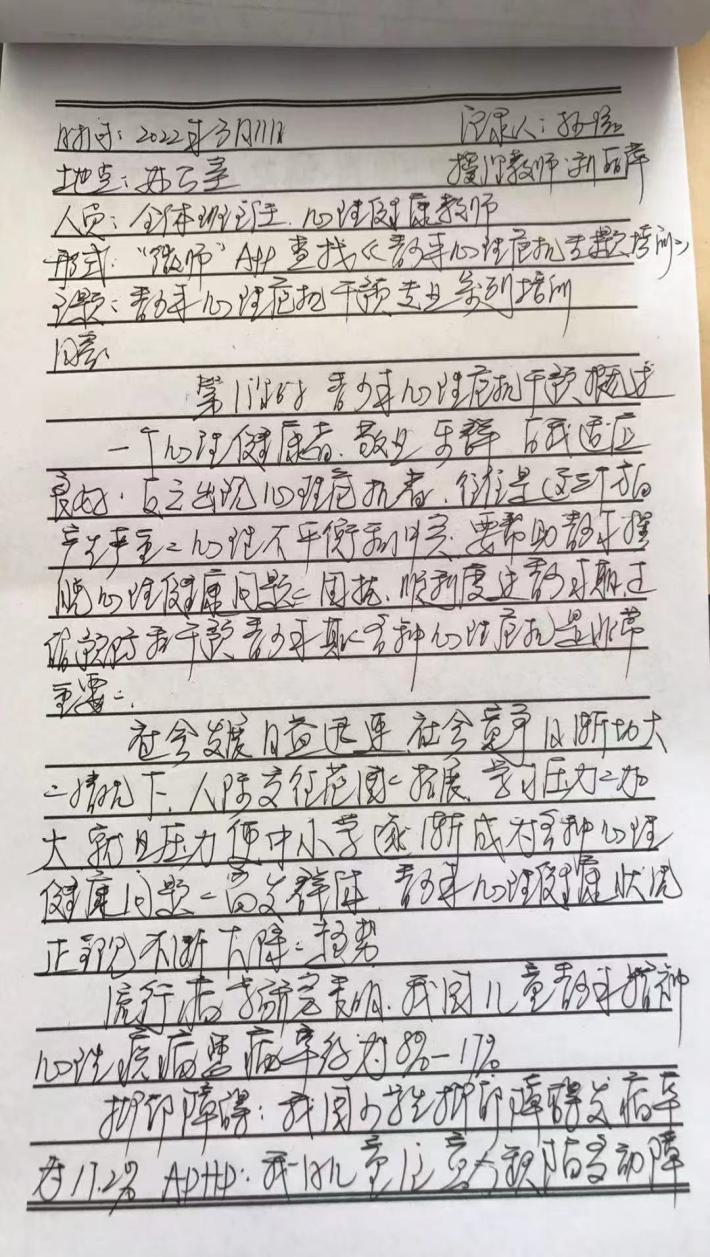 时间：2022年3月11日 记录人：
地点：办公室 授课教师：
人员：全体班主任、心理健康教师
形式："微师"APP查找《青少年心理危机专题培训》
主题：青少年心理危机干预专业系列培训
内容：
第1课时 青少年心理危机干预概述
一个心理健康者，敬业 乐群 自我适应
良好，反之出现心理危机者，往往是这三个方面
产生严重=心理不平衡到，要帮助青少年摆
脱心理健康问题=困扰，顺利度过青少年期，
预防和干预青少年期=各种心理危机是非常
重要=.
社会发展日益迅速 社会竞争日渐加大
=情况下，人际交往范围=拓展，学习压力=加
大 就业压力 使中小学逐渐成为各种心理
健康问题=高发群体，青少年心理健康状况
正呈现不断下降=趋势
流行病学研究表明，我国儿童青少年精神
心理疾病患病率约为8%-17%
抑郁障碍：我国小学生抑郁障碍发病率
为17.2% ADHD：我国儿童注意力缺陷多动障